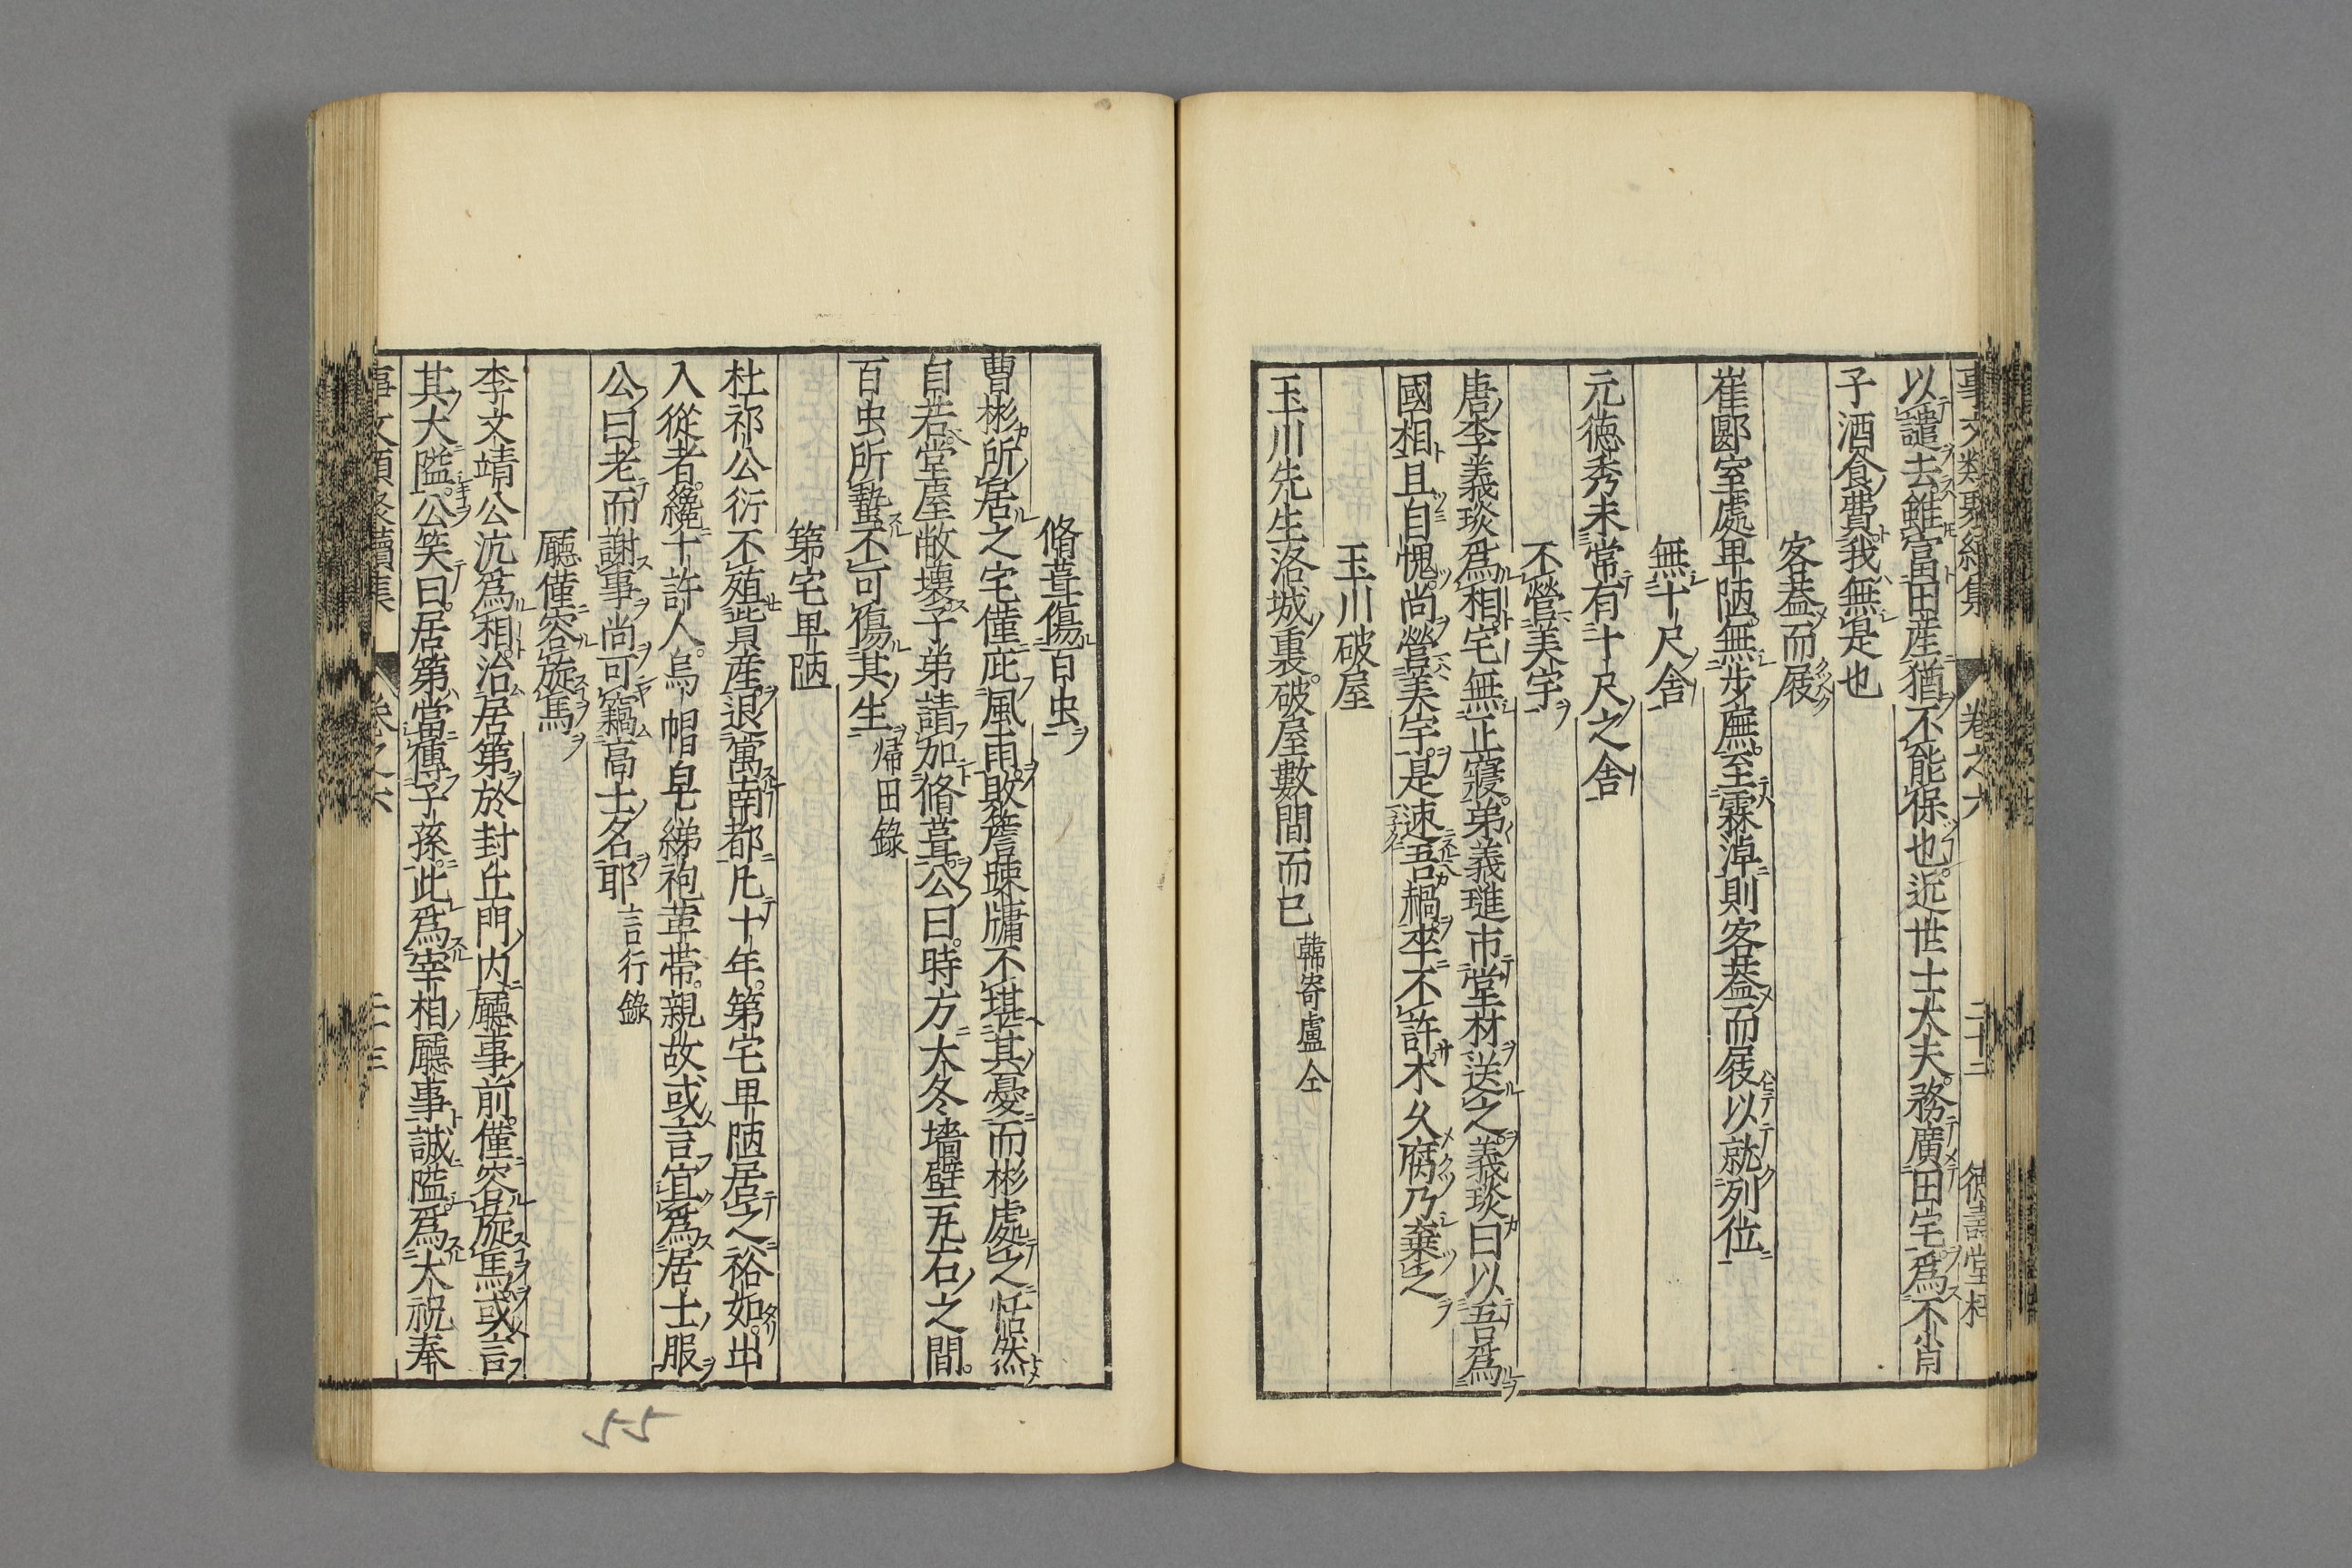 事文類聚續集 卷之六 二十二 德壽堂梓
以譴去雖富田産猶不能保也近世士大夫務廣田宅爲不肖
子酒食費我無是也
客蓋而屐
崔郾室處卑陋無步廡至霖淖則客蓋而屐以就列位
無十尺舍
元德秀未嘗有十尺之舍
不營美宇
唐李義琰爲相宅無正寢弟義璡市堂材送之義琰曰以吾爲
國相且自愧尚營美宇是速吾禍卒不許木久腐乃棄之
玉川破屋
玉川先生洛城裏破屋數間而已韓寄盧仝
脩葺傷百虫
曹彬所居之宅僅庇風雨敗簷踈牖不堪其憂而彬處之恬然
自若堂屋敝壞子弟請加脩葺公曰時方大冬墻壁瓦石之間
百虫所蟄不可傷其生 帰田錄
第宅卑陋
杜祁公衍不殖貲産退寓南都凡十年第宅卑陋居之裕如出
入從者纔十許人烏帽皂綈袍革帶親故或言宜爲居士服
公曰老而謝事尚可竊高士名耶 言行錄
廳僅容旋馬
李文靖公沆爲相治居第於封丘門内廳事前僅容旋馬或言
其大隘公笑曰居第當傳子孫此爲宰相廳事誠隘爲太祝奉
事文類聚續集 卷之六 二十三
55